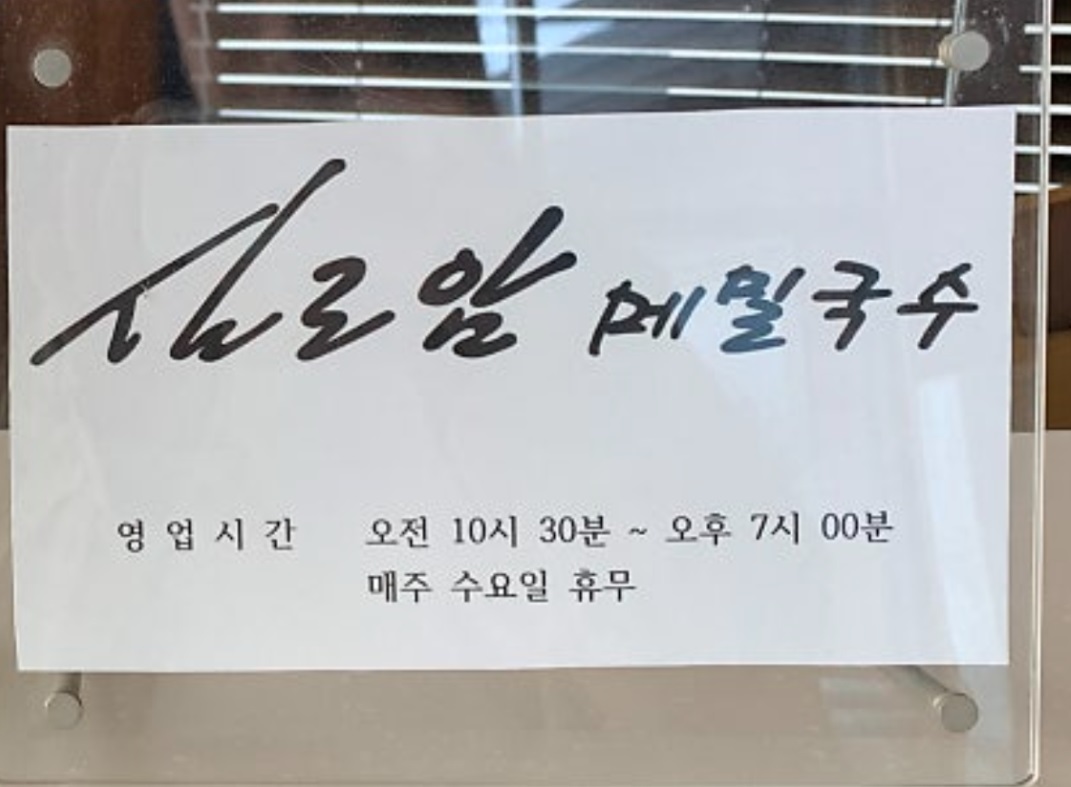 실로암 메밀국수
영업시간 오전 10시 30분 ~ 오후 7시 00분
매주 수요일 휴무